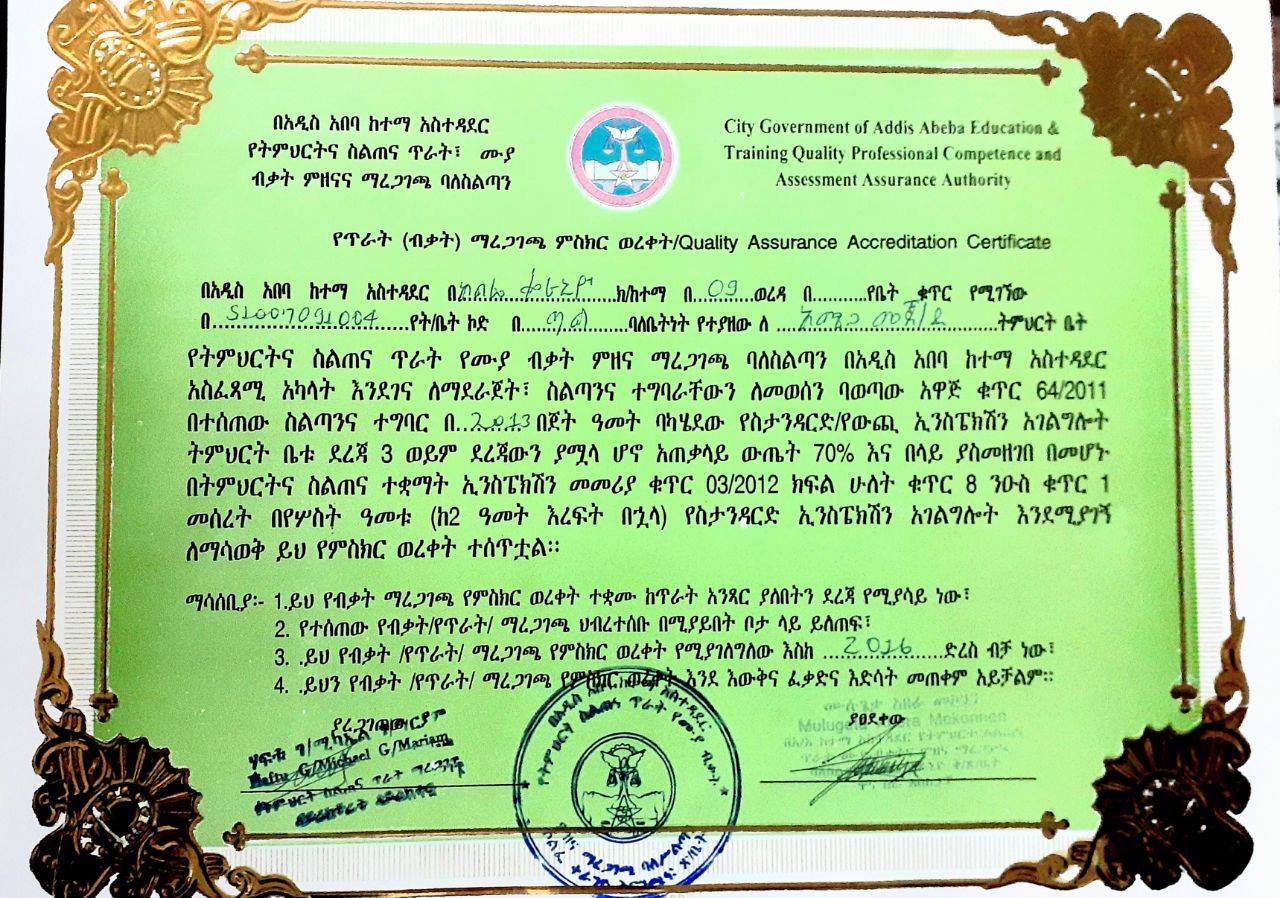 በአዲስ አበባ ከተማ አስተዳደር
የትምህርትና ስልጠና ጥራት፣ ሙያ
ብቃት ምዘናና ማረጋገጫ ባለስልጣን
City Government of Addis Abeba Education &
Training Quality Professional Competence and
Assessment Assurance Authority
የጥራት (ብቃት) ማረጋገጫ ምስክር ወረቀት/Quality Assurance Accreditation Certificate
በአዲስ አበባ ከተማ አስተዳደር በ ኮልፌ ቀራኒዮ ክ/ከተማ በ 09 ወረዳ በ...........የቤት ቁጥር የሚገኘው
በ S1007091004 የት/ቤት ኮድ በ ግል ባለቤትነት የተያዘው ለ ትምህርት ቤት
የትምህርትና ስልጠና ጥራት የሙያ ብቃት ምዘና ማረጋገጫ ባለስልጣን በአዲስ አበባ ከተማ አስተዳደር
አስፈጻሚ አካላት እንደገና ለማደራጀት፣ ስልጣንና ተግባራቸውን ለመወሰን ባወጣው አዋጅ ቁጥር 64/2011
በተሰጠው ስልጣንና ተግባር በ 2013 በጀት ዓመት ባካሄደው የስታንዳርድ/የውጪ ኢንስፔክሽን አገልግሎት
ትምህርት ቤቱ ደረጃ 3 ወይም ደረጃውን ያሟላ ሆኖ አጠቃላይ ውጤት 70% እና በላይ ያስመዘገበ በመሆኑ
በትምህርትና ስልጠና ተቋማት ኢንስፔክሽን መመሪያ ቁጥር 03/2012 ክፍል ሁለት ቁጥር 8 ንዑስ ቁጥር 1
መሰረት በየሦስት ዓመቱ (ከ2 ዓመት እረፍት በኋላ) የስታንዳርድ ኢንስፔክሽን አገልግሎት እንደሚያገኝ
ለማሳወቅ ይህ የምስክር ወረቀት ተሰጥቷል።
ማሳሰቢያ፦ 1.ይህ የብቃት ማረጋገጫ የምስክር ወረቀት ተቋሙ ከጥራት አንጻር ያለበትን ደረጃ የሚያሳይ ነው፣
2. የተሰጠው የብቃት/የጥራት/ ማረጋገጫ ህብረተሰቡ በሚያይበት ቦታ ላይ ይለጠፍ፣
3. .ይህ የብቃት /የጥራት/ ማረጋገጫ የምስክር ወረቀት የሚያገለግለው እስከ 2016 ድረስ ብቻ ነው፣
4. .ይህን የብቃት /የጥራት/ ማረጋገጫ የምስክር ወረቀት እንደ እውቅና ፈቃድና እድሳት መጠቀም አይቻልም።
ያረጋገጠው
ሃፍቱ ገ/ሚካኤል ገ/ማርያም
Haftu G/Michael G/Mariam
የትምህርት ስልጠና ጥራት ማረጋገጫ
ያፀደቀው
Mekonnen